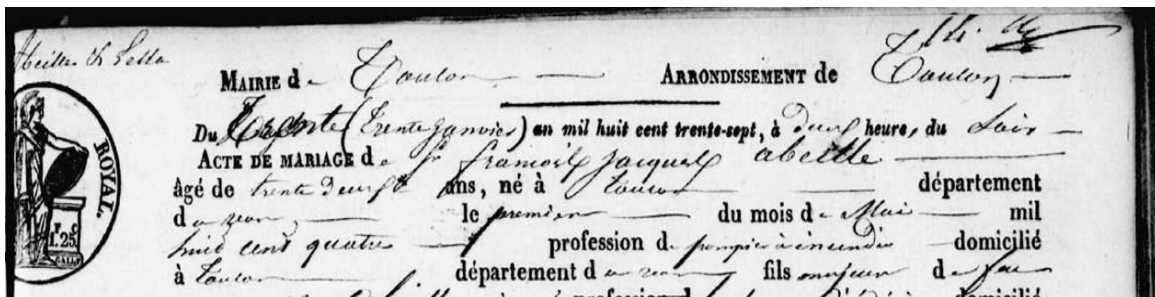 14.
Abeille &
MAIRIE de Toulon ARRONDISSEMENT de Toulon
Du Trente (trente Janvier) an mil huit cent trente-sept, à deux heure, du Soir
ACTE DE MARIAGE de Sr françois Jacques abeille
âgé de trente deux ans, né à toulon département
du var le premier du mois de Mai mil
huit cent quatre profession de pompier à incendie domicilié
à toulon département du var fils majeur de feu
profession d domicilié
ROYAL.
1.25.